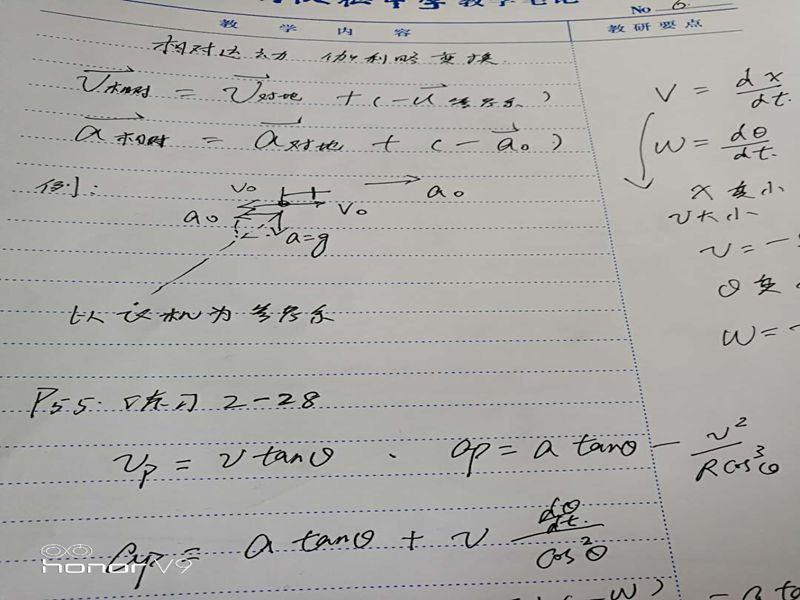 教学笔记
No 6.
教 学 内 容
教研要点
相对运动 伽利略变换.
v相对 = v对地 + (-u参考系)
a相对 = a对地 + (-a₀)
例:
v₀
a₀
a₀
v₀
a=g
以 飞机为参考系
P55. 练习 2-28
vₚ = v tanθ . aₚ = a tanθ - v²/Rcos³θ
aₚ = a tanθ + v (dθ/dt)/cos²θ
v = dx/dt.
w = dθ/dt.
x 变小
v大小
v = -
θ 变
w = -
honor V9